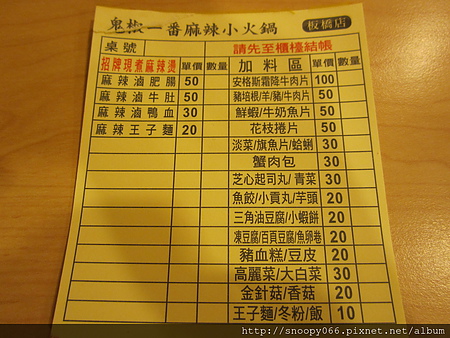 鬼椒一番麻辣小火鍋 板橋店
桌號 請先至櫃檯結帳
招牌現煮麻辣燙 單價 數量 加料區 單價 數量
麻辣滷肥腸 50 安格斯霜降牛肉片 100
麻辣滷牛肚 50 豬培根/羊/豬/牛肉片 50
麻辣滷鴨血 30 鮮蝦/牛奶魚片 50
麻辣王子麵 20 花枝捲片 50
淡菜/旗魚片/蛤蜊 30
蟹肉包 30
芝心起司丸/青菜 30
魚餃/小貢丸/芋頭 20
三角油豆腐/小蝦餅 20
凍豆腐/百頁豆腐/魚卵卷 20
豬血糕/豆皮 20
高麗菜/大白菜 30
金針菇/香菇 20
王子麵/冬粉/飯 10
http://snoopy066.pixnet.net/album